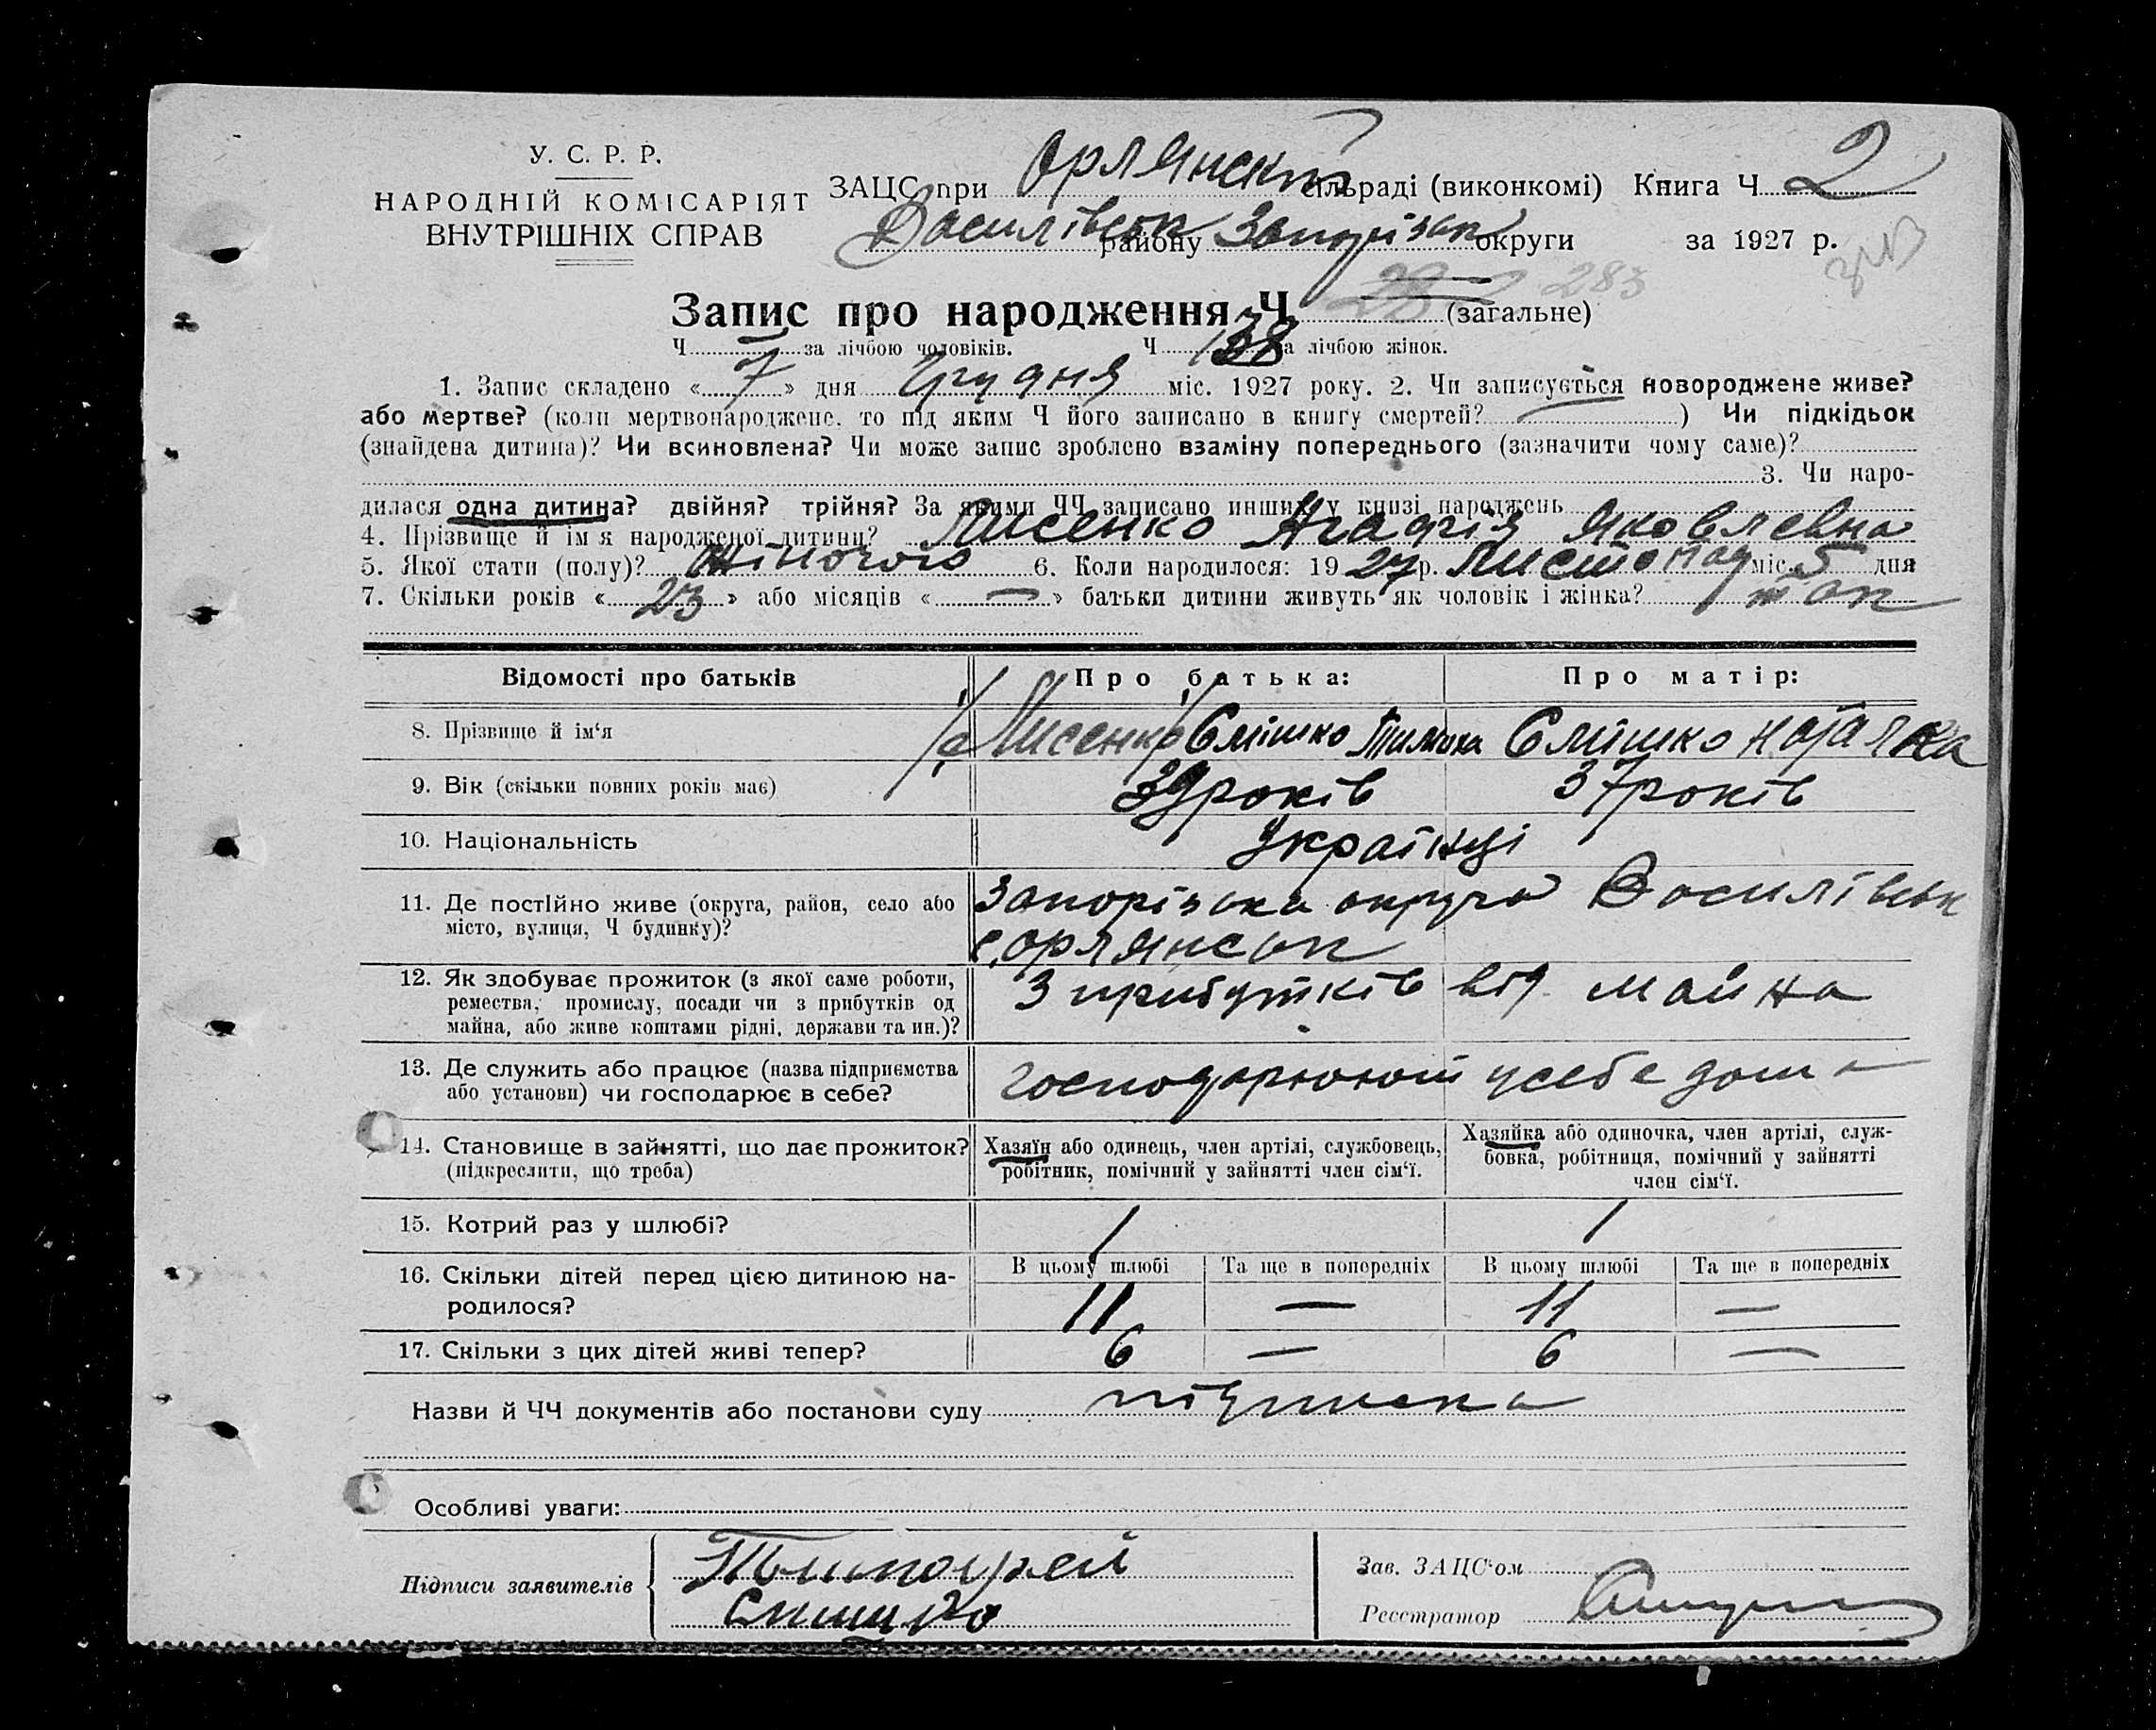 У. С. Р. Р.
НАРОДНІЙ КОМІСАРІЯТ
ВНУТРІШНІХ СПРАВ
ЗАЦС при Орлянскій сільраді (виконкомі) Книга Ч. 2
Василівськ району Запорізьк округи за 1927 р.
283
Запис про народження Ч. (загальне)
Ч. — за лічбою чоловіків. Ч. 138 за лічбою жінок.
1. Запис складено «7» дня Грудня міс. 1927 року. 2. Чи записується новороджене живе?
або мертве? (коли мертвонароджене, то під яким Ч його записано в книгу смертей? —) Чи підкідьок
(знайдена дитина)? Чи всиновлена? Чи може запис зроблено взаміну попереднього (зазначити чому саме)?
3. Чи наро-
дилася одна дитина? двійня? трійня? За якими ЧЧ записано инших у книзі народжень
4. Прізвище й ім'я народженої дитини? Лисенко Агафія Яковлевна
5. Якої статі (полу)? Жіночого 6. Коли народилося: 1927 р. Листопад міс. 5 дня
7. Скільки років «23» або місяців «—» батьки дитини живуть як чоловік і жінка? так
Відомості про батьків Про батька: Про матір:
8. Прізвище й ім'я Лисенко Єлішко Тимоха Єлішко Наталка
9. Вік (скільки повних років має) 39 років 37 років
10. Національність Українці
11. Де постійно живе (округа, район, село або
місто, вулиця, Ч будинку)?
Запорізька округа Василівськ
с. Орлянськ
12. Як здобуває прожиток (з якої саме роботи,
ремества, промислу, посади чи з прибутків од
майна, або живе коштами рідні, держави та ин.)?
З прибутків від майна
13. Де служить або працює (назва підприємства
або установи) чи господарює в себе?
господарюють у себе дома
14. Становище в зайнятті, що дає прожиток?
(підкреслити, що треба)
Хазяїн або одинець, член артілі, службовець,
робітник, помічний у зайнятті член сім'ї.
Хазяйка або одиночка, член артілі, служ-
бовка, робітниця, помічний у зайнятті
член сім'ї.
15. Котрий раз у шлюбі? 1 1
В цьому шлюбі Та ще в попередніх В цьому шлюбі Та ще в попередніх
16. Скільки дітей перед цією дитиною на-
родилося?
11 — 11 —
17. Скільки з цих дітей живі тепер? 6 — 6 —
Назви й ЧЧ документів або постанови суду підписка
Особливі уваги:
Підписи заявителів
Зав. ЗАЦС'ом
Реєстратор